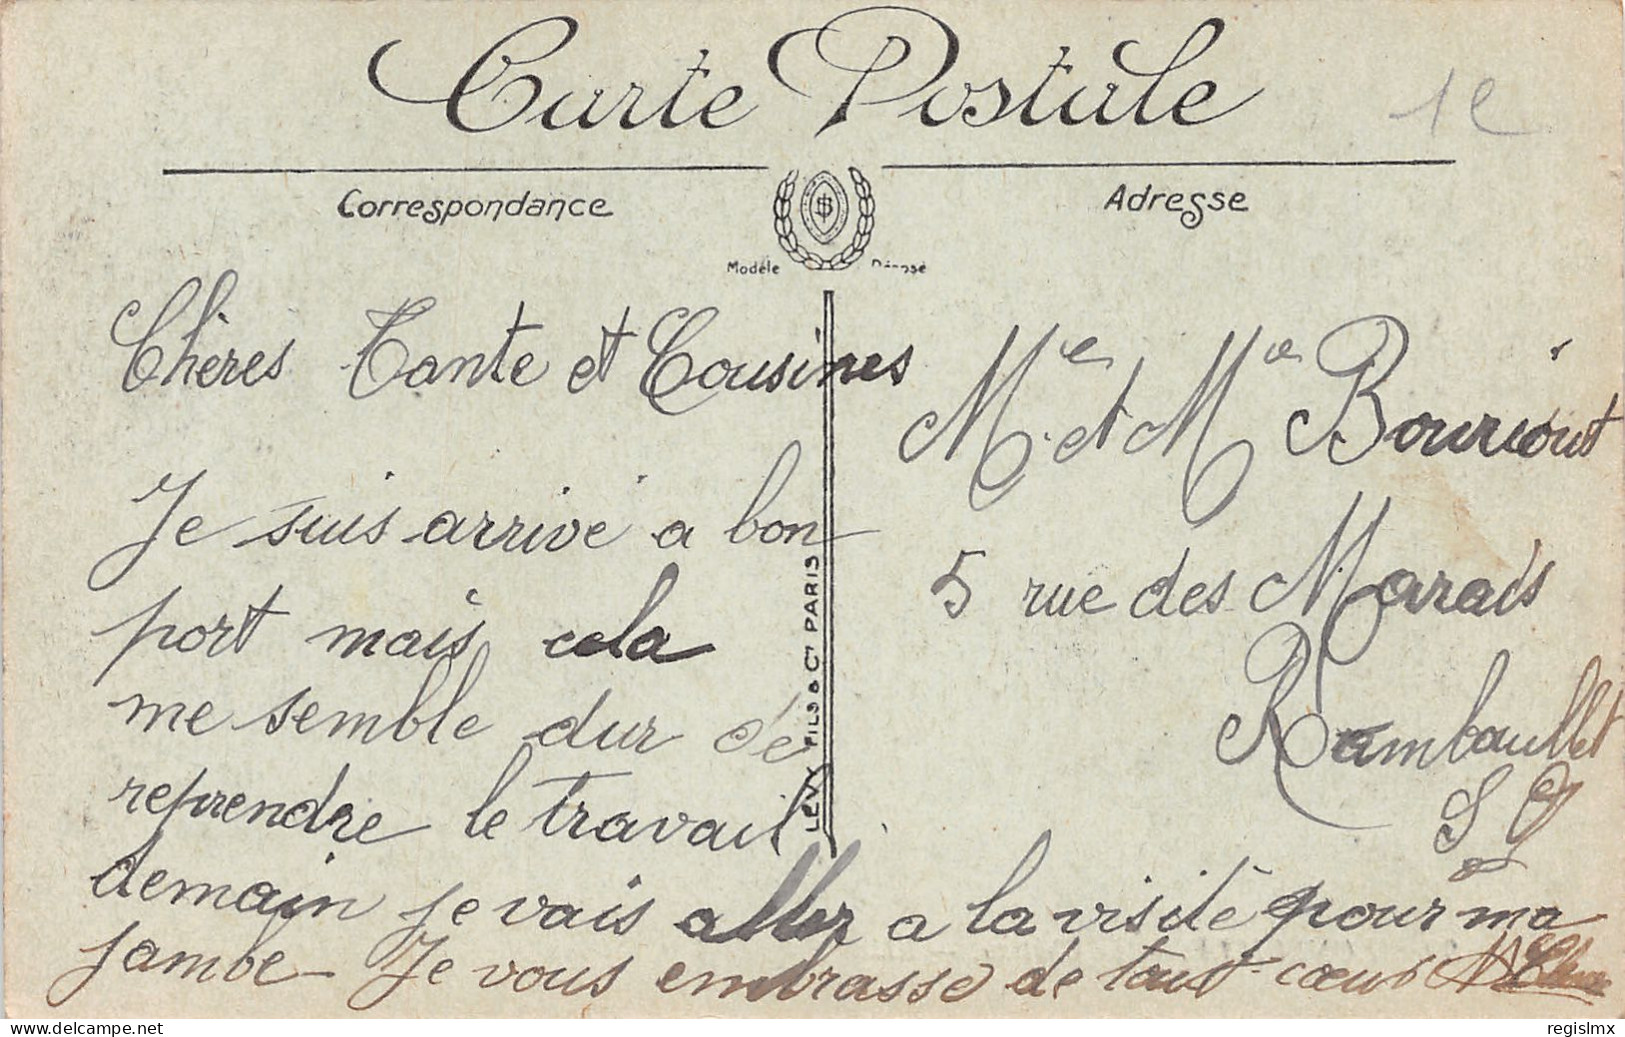 Carte Postale
1e
Correspondance
Adresse
Modèle Déposé
Chères Tante et Cousines
Je suis arrivé a bon
port mais cela
me semble dur de
reprendre le travail
demain je vais aller a la visite pour ma
jambe - Je vous embrasse de tout cœur
Me et Me Bourcout
5 rue des Marais
Rambouillet
S O
LEVY FILS & Cie PARIS
delcampe.net
regislmx